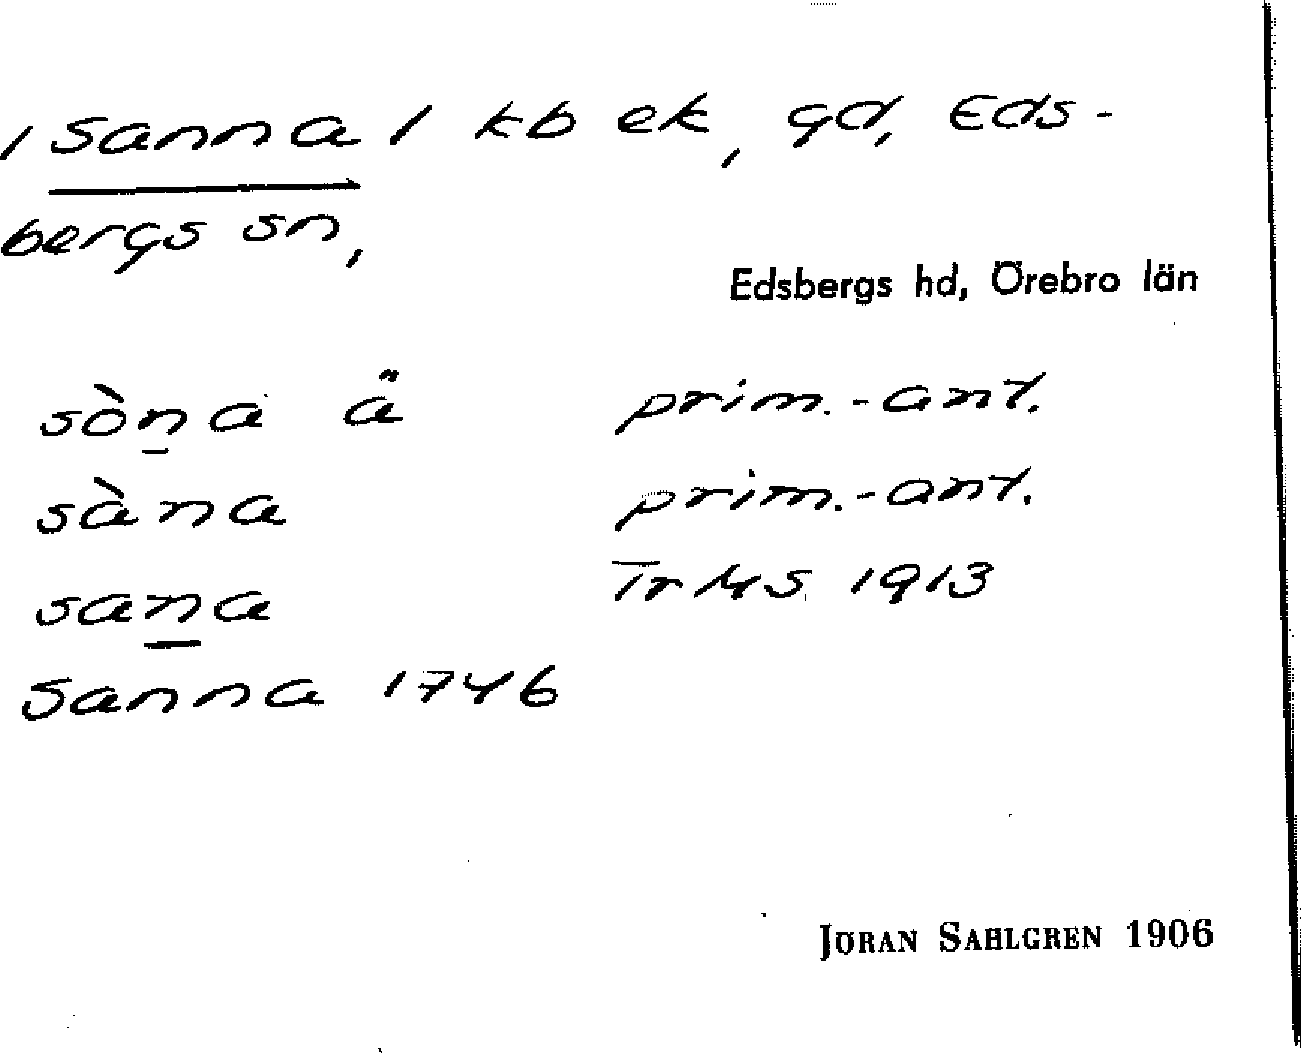 / Sanna / kb ek, gd, Eds-
bergs sn,
Edsbergs hd, Örebro län
sòna ä prim.-ant.
sàna prim.-ant.
sana Tr MS 1913
Sanna 1746
JÖRAN SAHLGREN 1906